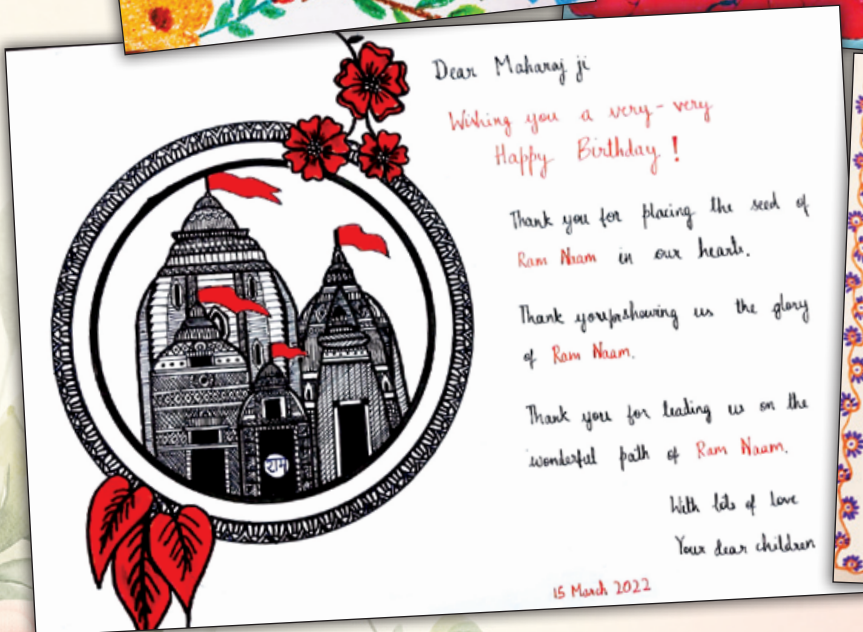 Dear Maharaj ji
Wishing you a very-very
Happy Birthday !
Thank you for placing the seed of
Ram Naam in our hearts.
Thank you for showing us the glory
of Ram Naam.
Thank you for leading us on the
wonderful path of Ram Naam.
With lots of love
Your dear children
15 March 2022
राम